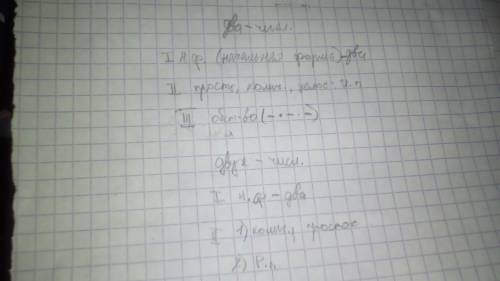 Два - числ.
I н.ф. (начальная форма) - два
II прост., колич., И.п
III обст-во (– · – · –)
двух - числ.
I н.ф - два
II 1) колич., простое
2) Р.п.